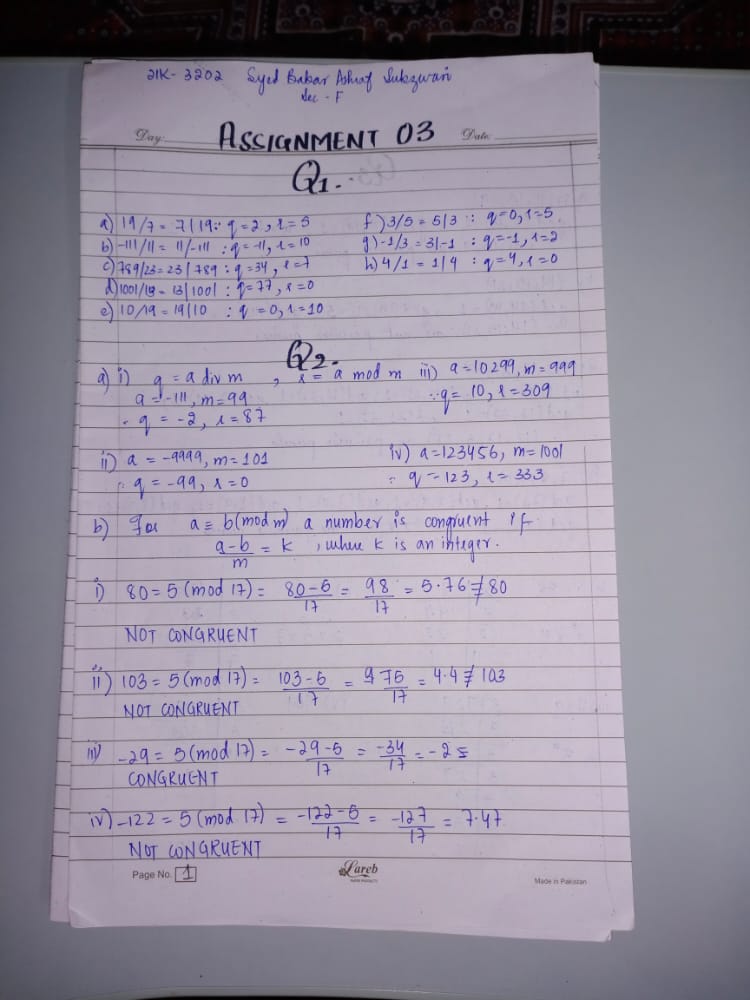 21K-3202 Syed Babar Ashraf Subzwari
Sec - F
Day: ASSIGNMENT 03 Date:
Q1.
a) 19/7 = 7|19 ∴ q=2, r=5
b) -111/11 = 11/-111 : q=-11, r=10
c) 789/23 = 23|789 : q=34, r=7
d) 1001/13 = 13|1001 : q=77, r=0
e) 10/19 = 19|10 : q=0, r=10
f) 3/5 = 5|3 : q=0, r=5
g) -1/3 = 3|-1 : q=-1, r=2
h) 4/1 = 1|4 : q=4, r=0
Q2.
a) i) q = a div m , r = a mod m
a = -111, m = 99
∴ q = -2, r = 87
iii) a=10299, m=999
∴ q= 10, r=309
ii) a = -9999, m=101
∴ q = -99, r=0
iv) a=123456, m=1001
∴ q=123, r=333
b) For a ≡ b(mod m) a number is congruent if
a-b/m = k , where k is an integer.
i) 80 = 5 (mod 17) = 80-5/17 = 98/17 = 5.76 ≠ 80
NOT CONGRUENT
ii) 103 = 5(mod 17) = 103-5/17 = /17 = 4.4 ≠ 103
NOT CONGRUENT
iii) -29 = 5(mod 17) = -29-5/17 = -34/17 = -2
CONGRUENT
iv) -122 = 5(mod 17) = -122-5/17 = -127/17 = 7.47
NOT CONGRUENT
Page No. 1
Lareb
Made in Pakistan